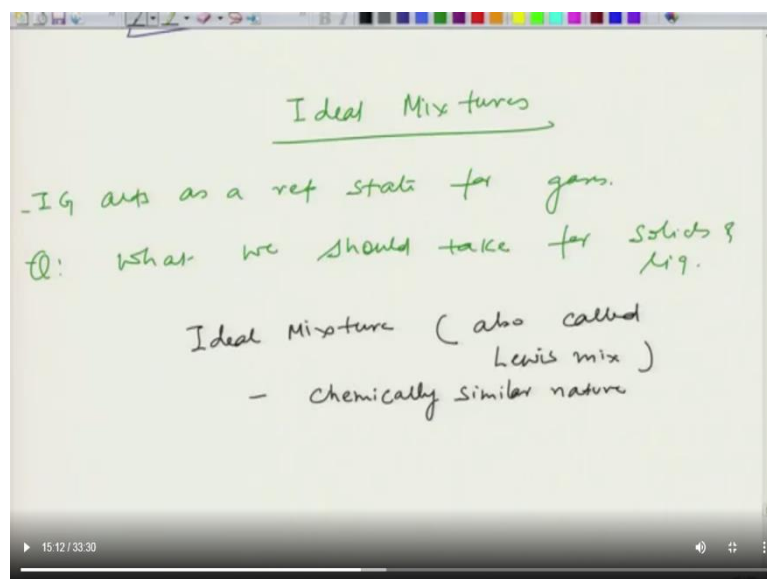 Ideal Mixtures
- IG acts as a ref state for gases.
Q: What we should take for solids &
liq.
Ideal Mixture (also called
Lewis mix)
- chemically similar nature
15:12 / 33:30